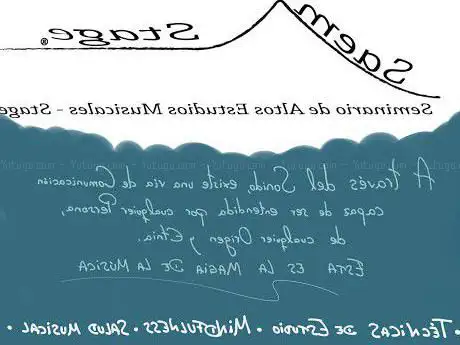 Saem Stage®
Seminario de Altos Estudios Musicales - Stage
Yotugo.com - Yotugo.com - Yotugo.com - Yotugo.com
A través del Sonido, existe una vía de Comunicación
capaz de ser entendida por cualquier Persona,
de cualquier Origen y Etnia.
ESTA ES LA MAGIA DE LA MÚSICA
• TÉCNICAS DE ESTUDIO • MINDFULNESS • SALUD MUSICAL •